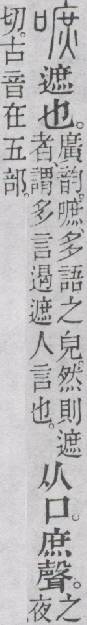 嗻遮也。廣韵。嗻、多語之皃。然則遮
者謂多言遏遮人言也。从口。庶聲。之夜
切。古音在五部。